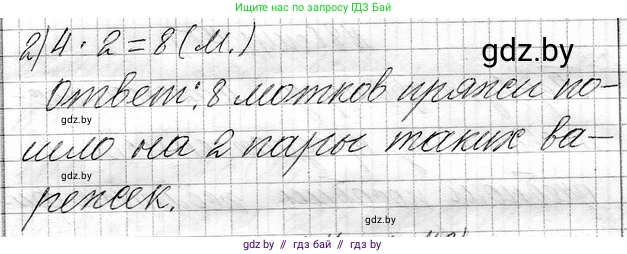 Ищите нас по запросу ГДЗ Бай
2) 4 · 2 = 8 (м.)
gdz.by
Ответ: 8 мотков пряжи по-
gdz.by
шло на 2 пары таких ва-
gdz.by
режек.
gdz.by
gdz.by // гдз бай // гдз.by